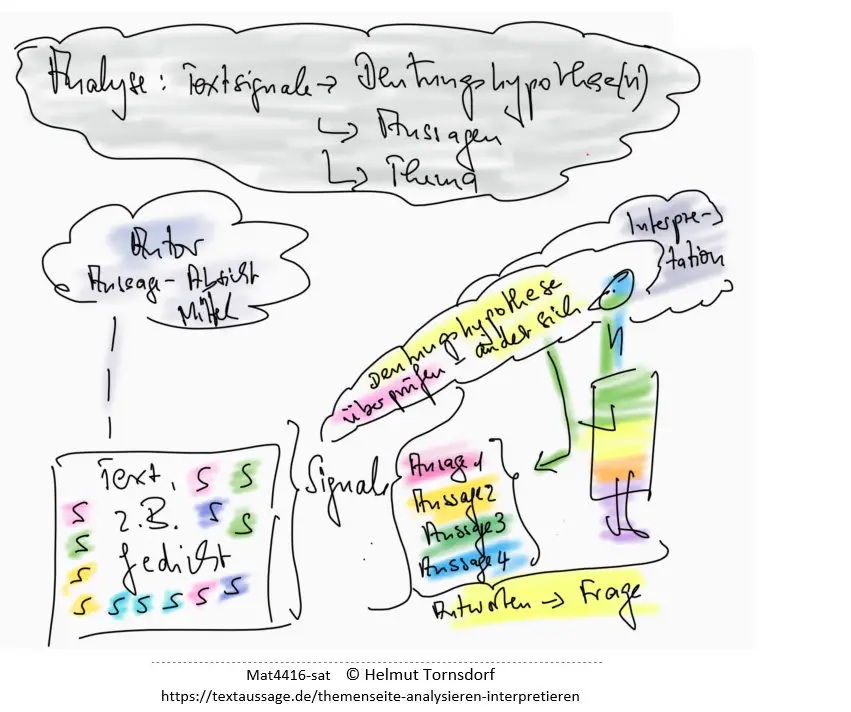 Analyse: Textsignale → Deutungshypothese(n)
↳ Aussagen
↳ Thema
Autor
Aussage - Absicht
Mittel
Interpre-
tation
Deutungshypothese
überprüfen - ändet sich
Text,
z.B.
Gedicht
S S
S S S
S
S
S S S S S S
Signale
Aussage 1
Aussage 2
Aussage 3
Aussage 4
Antworten → Frage
Mat4416-sat © Helmut Tornsdorf
https://textaussage.de/themenseite-analysieren-interpretieren